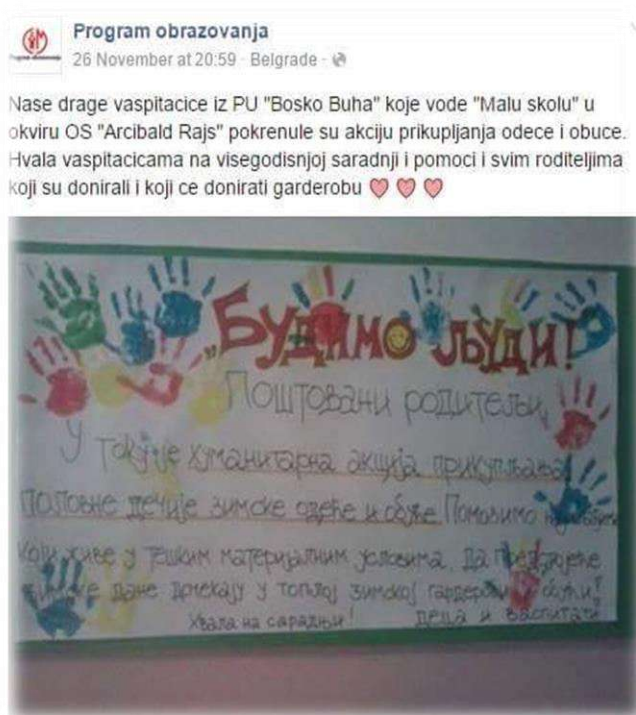 Program obrazovanja
26 November at 20:59 · Belgrade ·
Nase drage vaspitacice iz PU "Bosko Buha" koje vode "Malu skolu" u
okviru OS "Arcibald Rajs" pokrenule su akciju prikupljanja odece i obuce.
Hvala vaspitacicama na visegodisnjoj saradnji i pomoci i svim roditeljima
koji su donirali i koji ce donirati garderobu
„Будимо људи!
Поштовани родитељи,
У току је хуманитарна акција прикупљања
половне дечије зимске одеће и обуће. Помозимо
који живе у тешким материјалним условима, да предстојеће
зимске дане дочекају у топлој зимској гардероби и обући!
Хвала на сарадњи! деца и васпитачи